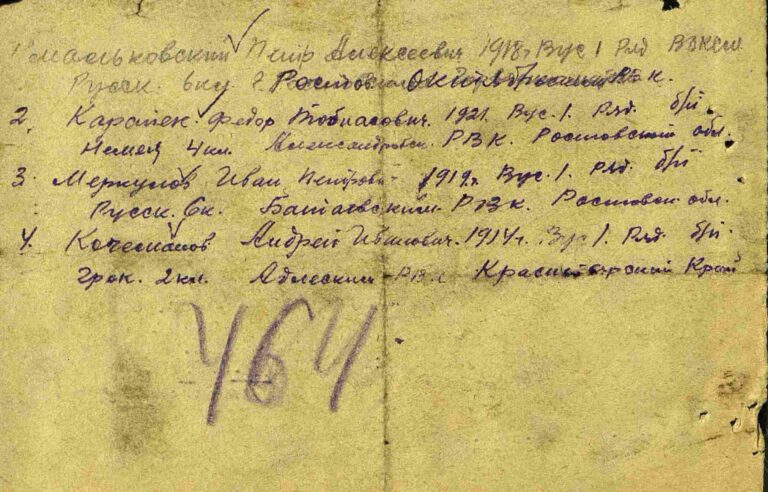 1 Маськовский Петр Алексеевич 1918г Вус 1 Ряд ВЛКСМ
Русск. 6кл г. Ростов Октябрьский РВк.
2. Карапек Федор Тобиасович. 1921. Вус. 1. Ряд. б/п.
Немец 4кл. Александровск. РВк. Ростовской обл.
3. Меркулов Иван Петрович 1919г. Вус. 1. ряд. б/п
Русск. 6к. Батаевским РВк. Ростовск. обл.
4. Андрей Иванович. 1914г. Вус 1. Ряд. б/п.
грек. 2кл. Адлеским РВк Краснодарский Край
464